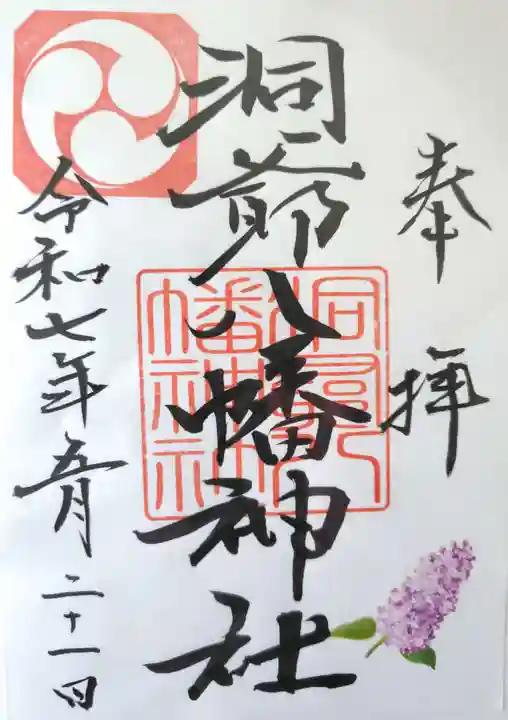 奉拝
洞爺八幡神社
洞爺八幡神社
令和七年五月二十一日